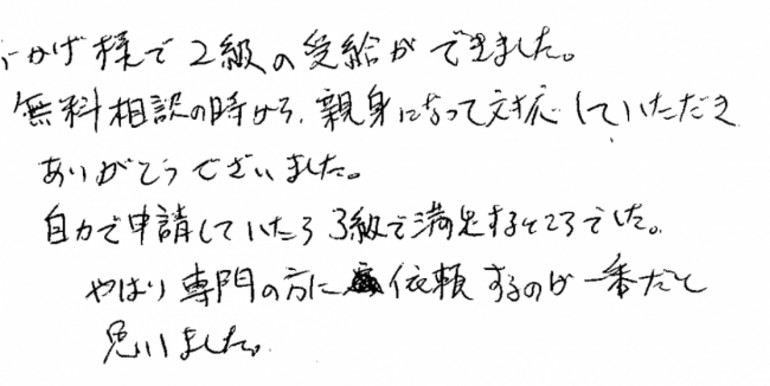 おかげ様で2級の受給ができました。
無料相談の時から、親身になって対応していただき
ありがとうございました。
自力で申請していたら3級で満足するところでした。
やはり専門の方に依頼するのが一番だと
思いました。